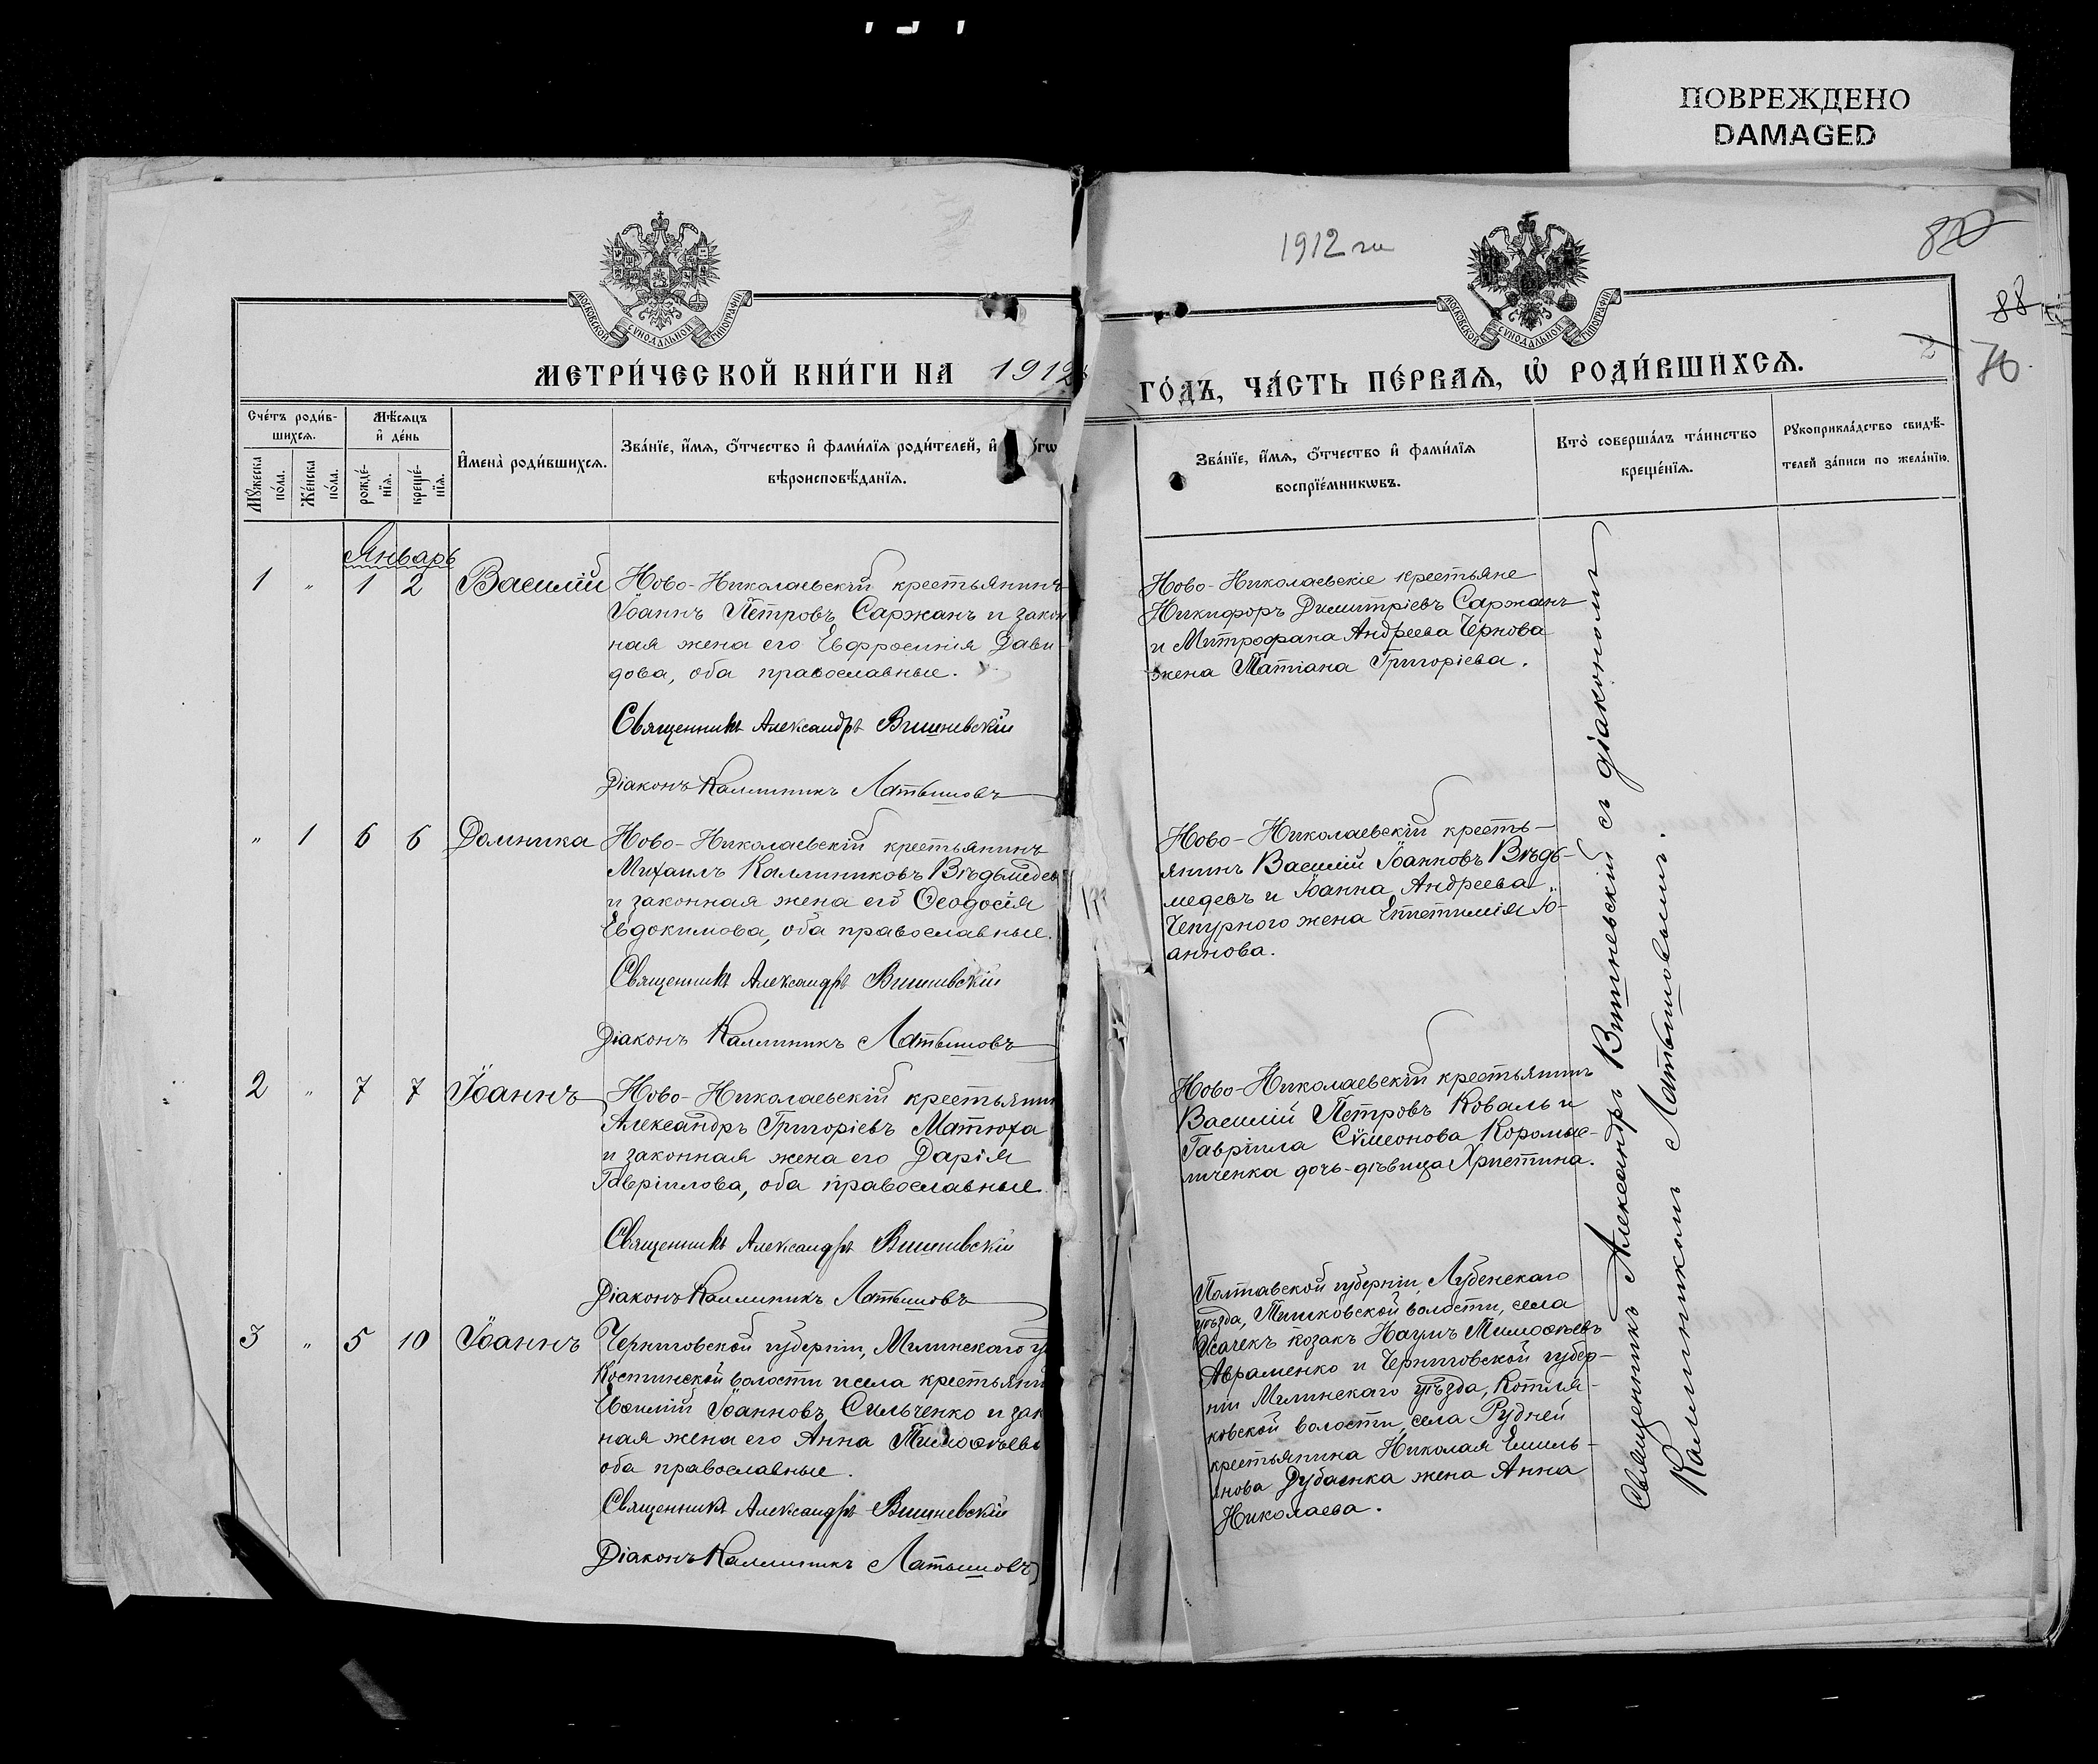 ПОВРЕЖДЕНО
DAMAGED
1912 га
88
2
76
МОСКОВСКОЙ СУНОДАЛЬНОЙ ТИПОГРАФІИ
МОСКОВСКОЙ СУНОДАЛЬНОЙ ТИПОГРАФІИ
МЕТРИ́ЧЕСКОЙ КНИ́ГИ НА 1912
ГО́ДЪ, ЧА́СТЬ ПЕ́РВАЯ, Ѡ҆ РОДИ́ВШИХСЯ.
Сче́тъ роди́в-
шихся.
Мѣ́сяцъ
и҆ де́нь
Мꙋ́жеска
по́ла.
Же́нска
по́ла.
рожде́-
нїя.
креще́-
нїя.
И҆мена̀ роди́вшихся.
Зва́нїе, и҆́мя, ѻ҆́тчество и҆ фами́лїя роди́телей, и҆
вѣроисповѣ́данїя.
Зва́нїе, и҆́мя, ѻ҆́тчество и҆ фами́лїя
воспрїе́мникѡвъ.
Кто̀ соверша́лъ та́инство
креще́нїя.
Рꙋкоприкла́дство свидѣ́-
телей за́писи по жела́нїю.
Январь
1 " 1 2 Василій
Ново-Николаевскій крестьянинъ
Іоаннъ Петровъ Саржанъ и закон
ная жена его Евфросинія Дави-
дова, оба православные.
Священникъ Александръ Вишневскій
Діаконъ Каллиникъ Латышовъ
Ново-Николаевскіе крестьяне
Никифоръ Димитріевъ Саржанъ
и Митрофана Андреева Чернова
жена Татіана Григоріева.
" 1 6 6 Домника
Ново-Николаевскій крестьянинъ
Михаилъ Каллиниковъ Вѣдьмедев
и законная жена его Ѳеодосія
Евдокимова, оба православные.
Священникъ Александръ Вишневскій
Діаконъ Каллиникъ Латышовъ
Ново-Николаевскій кресть-
янинъ Василій Іоанновъ Вѣдь-
медевъ и Іоанна Андреева
Чепурного жена Епистимія Іо-
аннова.
2 " 7 7 Іоаннъ
Ново-Николаевскій крестьянин
Александръ Григоріевъ Матюха
и законная жена его Дарія
Гавріилова, оба православные
Священникъ Александръ Вишневскій
Діаконъ Каллиникъ Латышовъ
Ново-Николаевскій крестьянинъ
Василій Петровъ Коваль и
Гавріила Сѵмеонова Коромыс-
личенка дочь-дѣвица Христина.
3 " 5 10 Іоаннъ
Черниговской губерніи, Мглинскаго у
Костинской волости и села крестьяни
Василій Іоанновъ Сильченко и зак
ная жена его Анна Тимоѳѣева
оба православные.
Священникъ Александръ Вишневскій
Діаконъ Каллиникъ Латышовъ
Полтавской губерніи, Лубенскаго
уѣзда, Тишковской волости, села
Исачекъ козакъ Наумъ Тимоѳѣевъ
Авраменко и Черниговской губер-
ніи Мглинскаго уѣзда, Котля-
ковской волости, села Рудней
крестьянина Николая Емель-
янова Дубаенка жена Анна
Николаева.
Священникъ Александръ Вишневскій съ діакономъ
Каллиникомъ Латышовымъ.